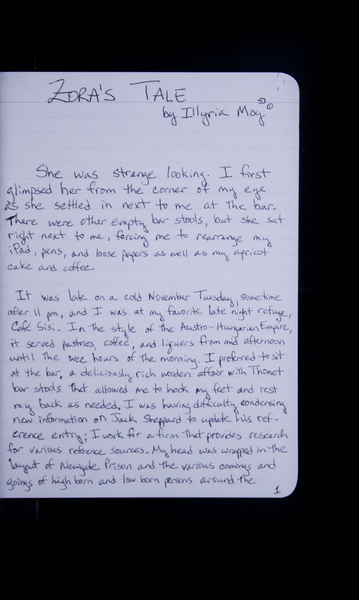 ZORA'S TALE
by Illyria Moy
She was strange looking. I first
glimpsed her from the corner of my eye
as she settled in next to me at the bar.
There were other empty bar stools, but she sat
right next to me, forcing me to rearrange my
iPad, pens, and loose papers as well as my apricot
cake and coffee.
It was late on a cold November Tuesday, sometime
after 11 pm, and I was at my favorite late night refuge,
Café Sisi. In the style of the Austro-Hungarian Empire,
it served pastries, coffee, and liquers from mid afternoon
until the wee hours of the morning. I preferred to sit
at the bar, a deliciously rich wooden affair with Thonet
bar stools that allowed me to hook my feet and rest
my back as needed. I was having difficulty condensing
new information on Jack Sheppard to update his ref-
erence entry; I work for a firm that provides research
for various reference sources. My head was wrapped in the
layout of Newgate Prison and the various comings and
goings of high born and low born persons around the
1